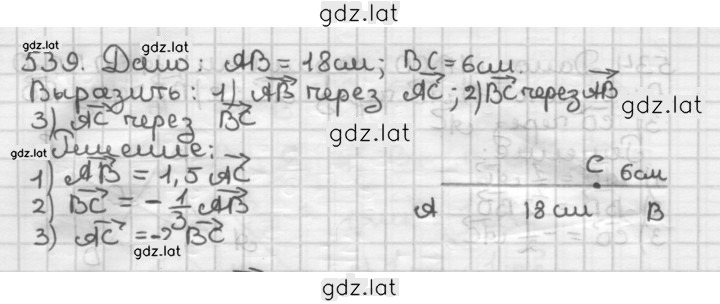 gdz.lat
gdz.lat gdz.lat
539. Дано: AB = 18 см; BC = 6 см.
Выразить: 1) AB⃗ через AC⃗; 2) BC⃗ через AB⃗
gdz.lat
3) AC⃗ через BC⃗
gdz.lat
gdz.lat Решение:
1) AB⃗ = 1,5 AC⃗
2) BC⃗ = - 1/3 AB⃗
3) AC⃗ = -2 BC⃗
gdz.lat
C 6 см
A 18 см B
gdz.lat